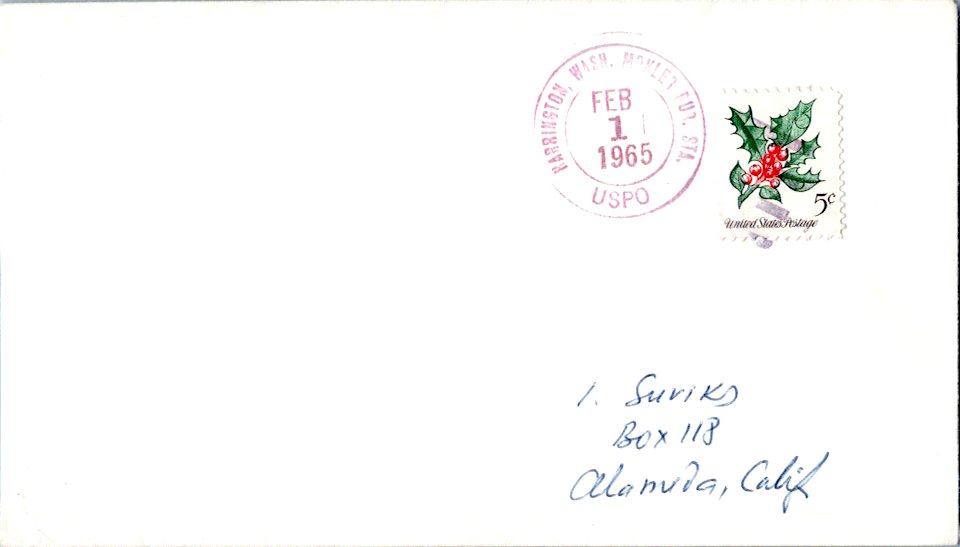 HARRINGTON, WASH. MOHLER RUR. STA.
FEB
1
1965
USPO
5c
United States Postage
1. Suriko
Box 118
Alameda, Calif